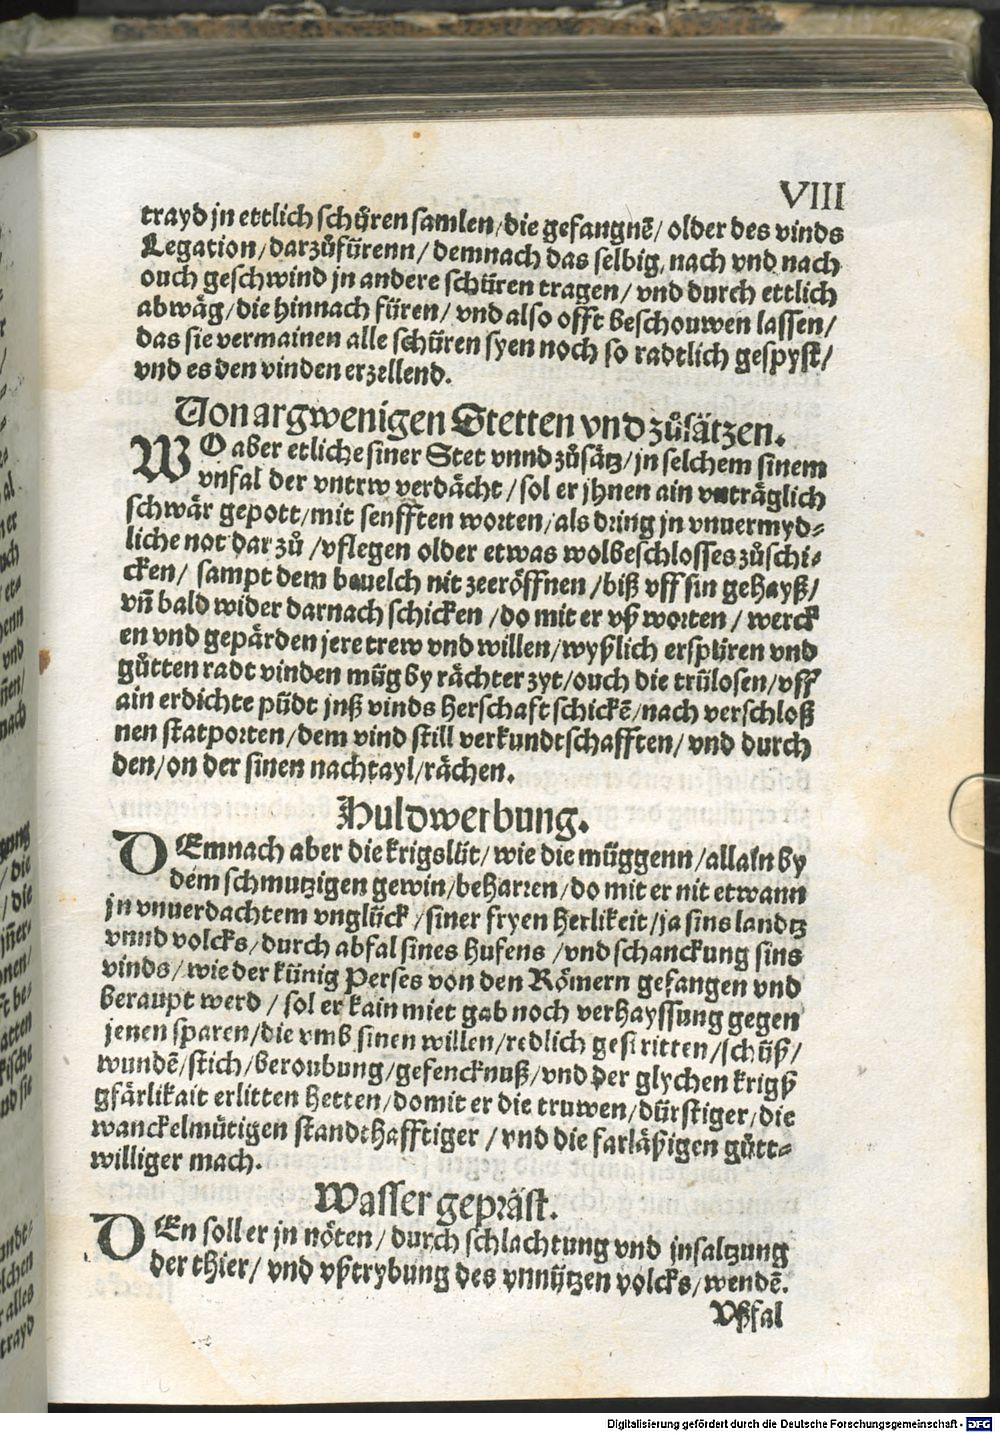 VIII
trayd jn ettlich schüren samlen/die gefangnẽ/ older des vinds
Legation/darzůfürenn/demnach das selbig, nach vnd nach
ouch geschwind jn andere schüren tragen/ vnd durch ettlich
abwäg/die hinnach füren/ vnd also offt beschouwen lassen/
das sie vermainen alle schüren syen noch so radtlich gespyst/
vnd es den vinden erzellend.
Von argwenigen Stetten vnd zůsätzen.
WO aber etliche siner Stet vnnd zůsätz/jn selchem sinem
vnfal der vntrw verdächt/sol er jhnen ain vnträglich
schwär gepott/mit senfften worten/als dring jn vnuermyd⸗
liche not dar zů/vflegen older etwas wolbeschlosses zůschi⸗
cken/ sampt dem bauelch nit zeeröffnen/biß vff sin gehayß/
vñ bald wider darnach schicken/do mit er vß worten/werck
en vnd gepärden jere trew vnd willen/wyßlich erspüren vnd
gůtten radt vinden müg by rächter zyt/ouch die trülosen/vff
ain erdichte püdt jnß vinds herschaft schickẽ/nach verschloß
nen statporten/dem vind still verkundtschafften/ vnd durch
den/on der sinen nachtayl/rächen.
Huldwerbung.
DEmnach aber die krigslüt/wie die müggenn/allain by
dem schmutzigen gewin/beharren/do mit er nit etwann
jn vnuerdachtem vnglück/siner fryen herlikeit/ja sins landtz
vnnd volcks/durch abfal sines hufens/vnd schanckung sins
vinds/wie der künig Perses von den Römern gefangen vnd
beraupt werd/ sol er kain miet gab noch verhayssung gegen
jenen sparen/die vmb sinen willen/redlich gestritten/schüß/
wundẽ/stich/beroubung/gefencknuß/vnd der glychen krigß
gfärlikait erlitten hetten/domit er die truwen/dürstiger/die
wanckelmütigen standthafftiger/vnd die farläßigen gůtt⸗
williger mach.
Wasser gepräst.
DEn soll er jn nöten/durch schlachtung vnd jnsaltzung
der thier/ vnd vßtrybung des vnnützen volcks/wendẽ.
Vßfal
Digitalisierung gefördert durch die Deutsche Forschungsgemeinschaft - DFG